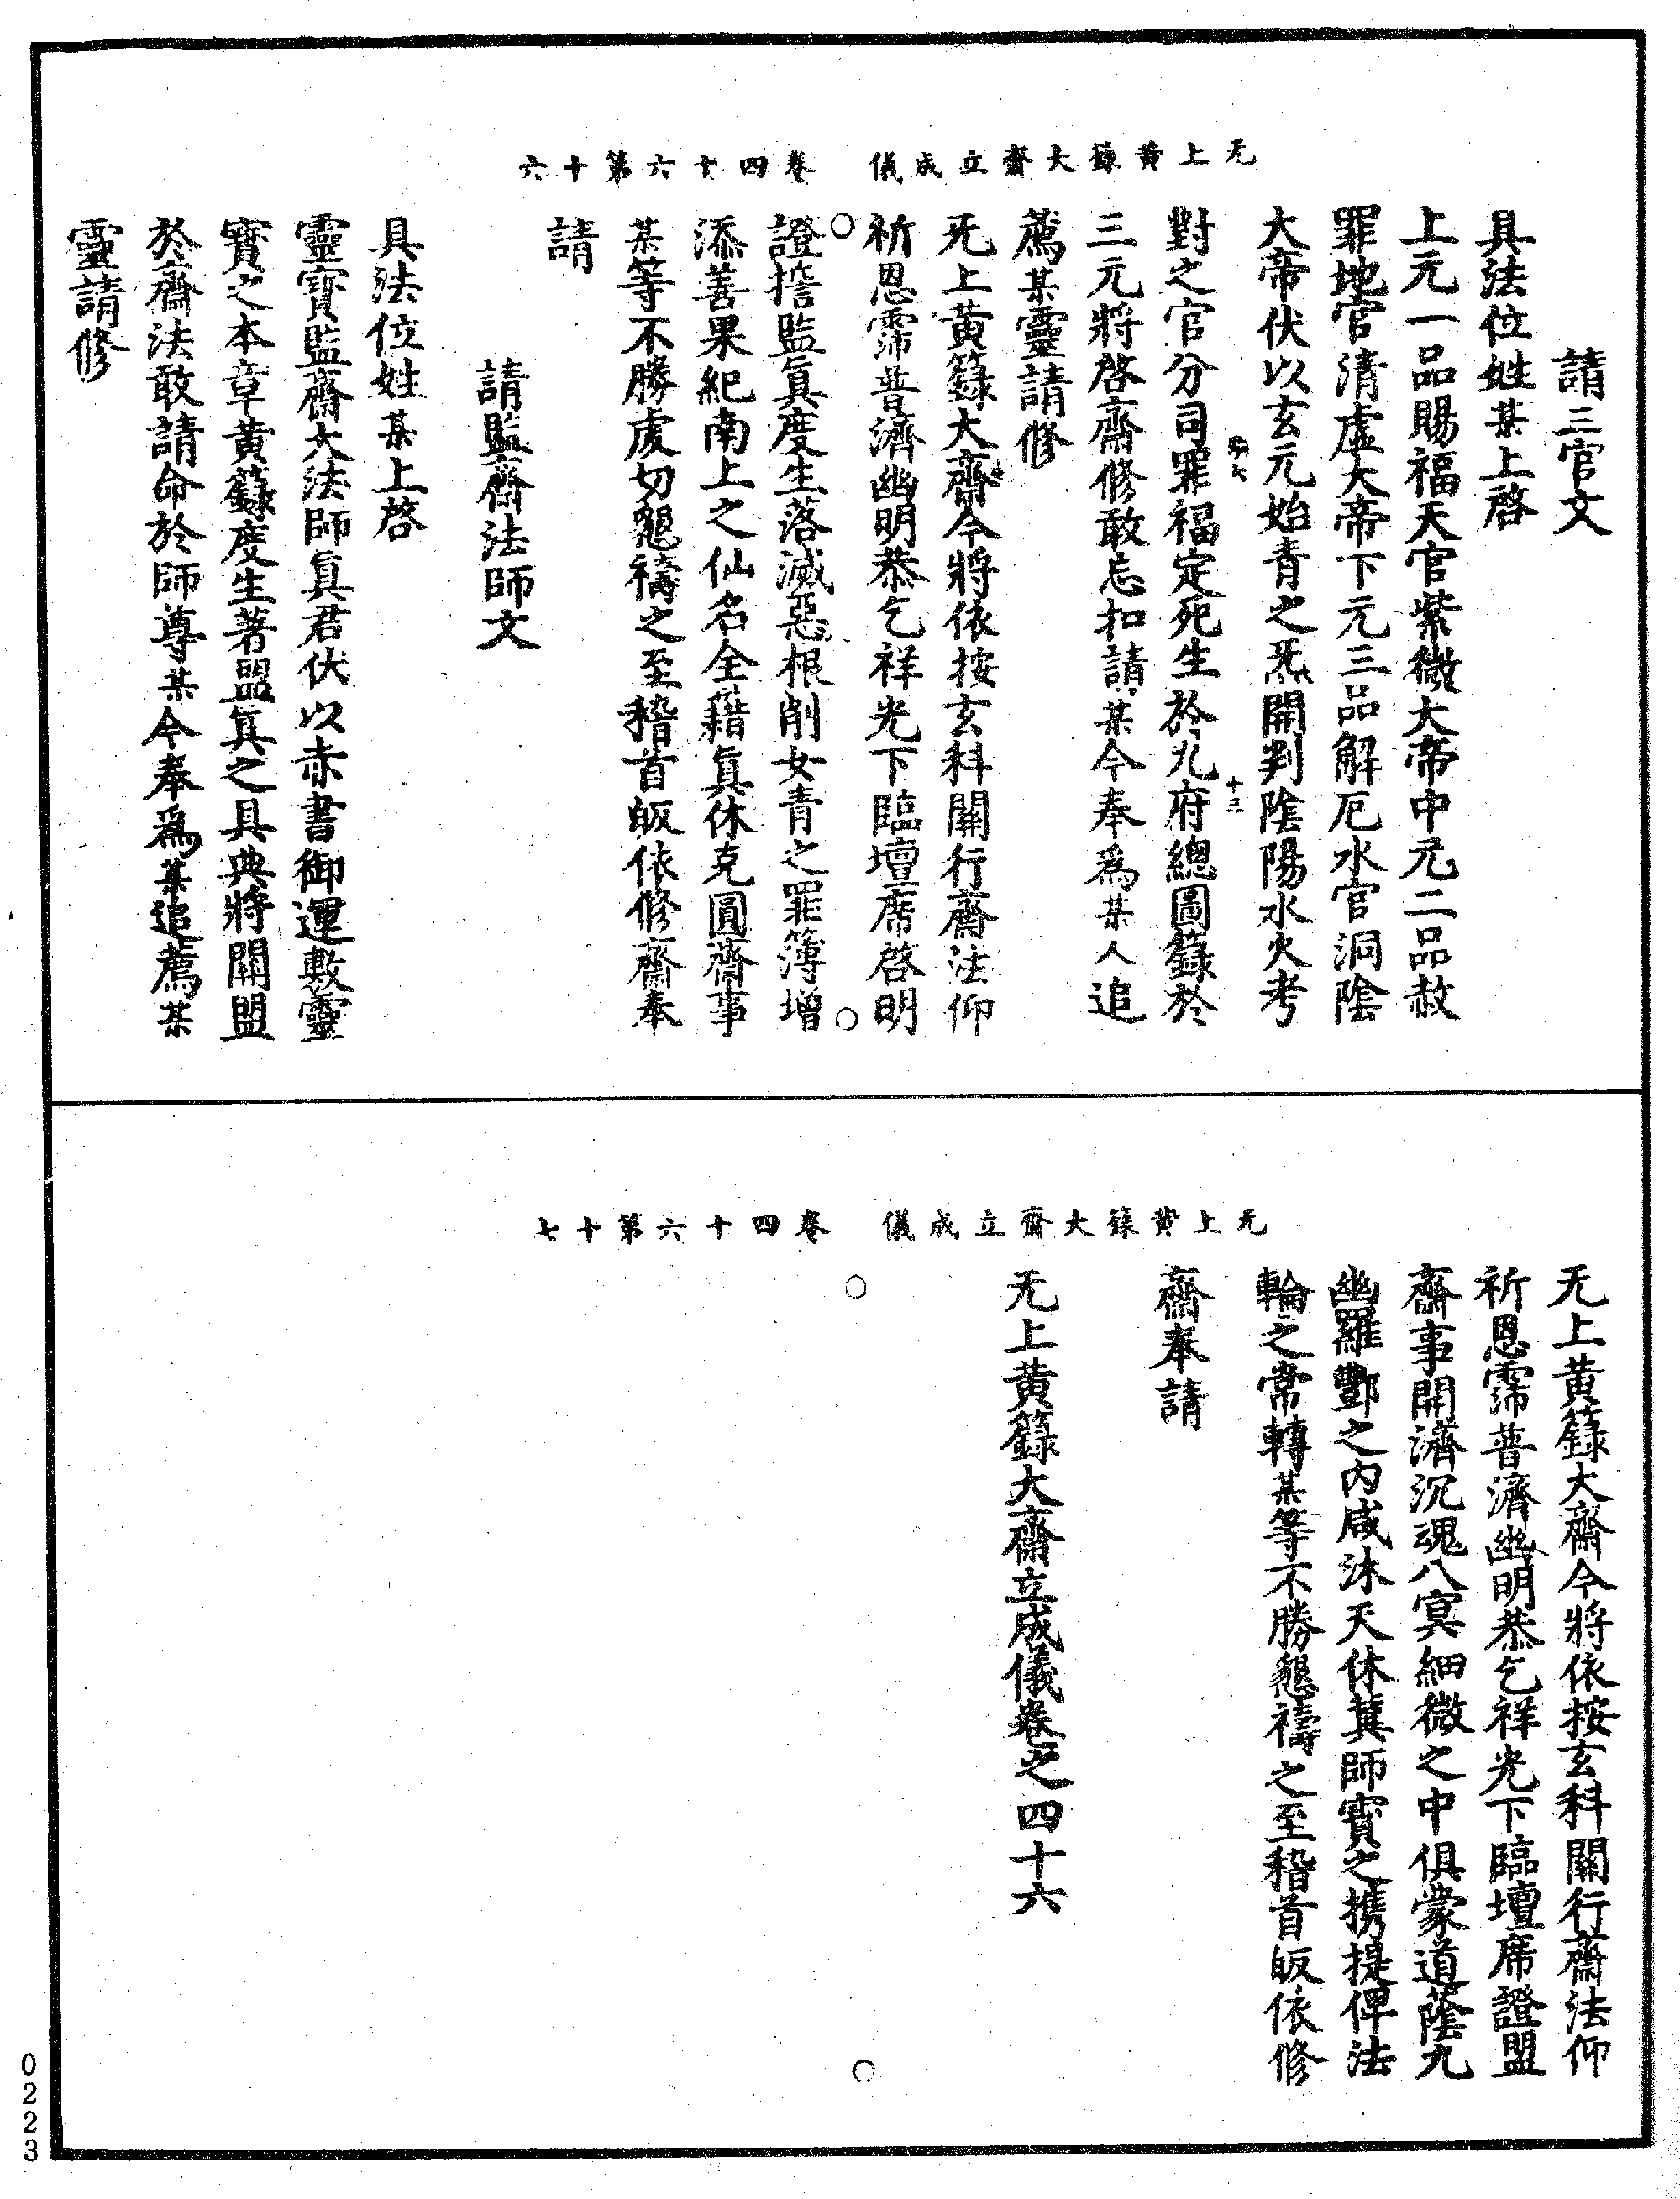 无上黃籙大齋立成儀　卷四十六第十六
請三官文
具法位姓某上啓
上元一品賜福天官紫微大帝中元二品赦
罪地官清虛大帝下元三品解厄水官洞陰
大帝伏以玄元始青之炁開判陰陽水火考
對之官分司罪福定死生於九府總圖籙於
十三
三元將啓齋修敢忘扣請某今奉爲某人追
薦某靈請修
无上黃籙大齋今將依按玄科關行齋法仰
祈恩霈普濟幽明恭乞祥光下臨壇席啓明
證擔監眞度生落滅惡根削女青之罪簿增
添善果紀南上之仙名全藉眞休克圓齋事
某等不勝虔切懇禱之至稽首皈依修齋奉
請
請監齋法師文
具法位姓某上啓
靈寶監齋大法師眞君伏以赤書御運敷靈
寶之本章黃籙度生著盟眞之具典將關盟
於齋法敢請命於師尊某今奉爲某追薦某
靈請修
无上黃籙大齋立成儀　卷四十六第十七
无上黃籙大齋今將依按玄科關行齋法仰
祈恩霈普濟幽明恭乞祥光下臨壇席證盟
齋事開濟沉魂八冥細微之中俱蒙道蔭九
幽羅酆之内咸沐天休冀師寶之携提俾法
輪之常轉某等不勝懇禱之至稽首皈依修
齋奉請
无上黃籙大齋立成儀卷之四十六
0223